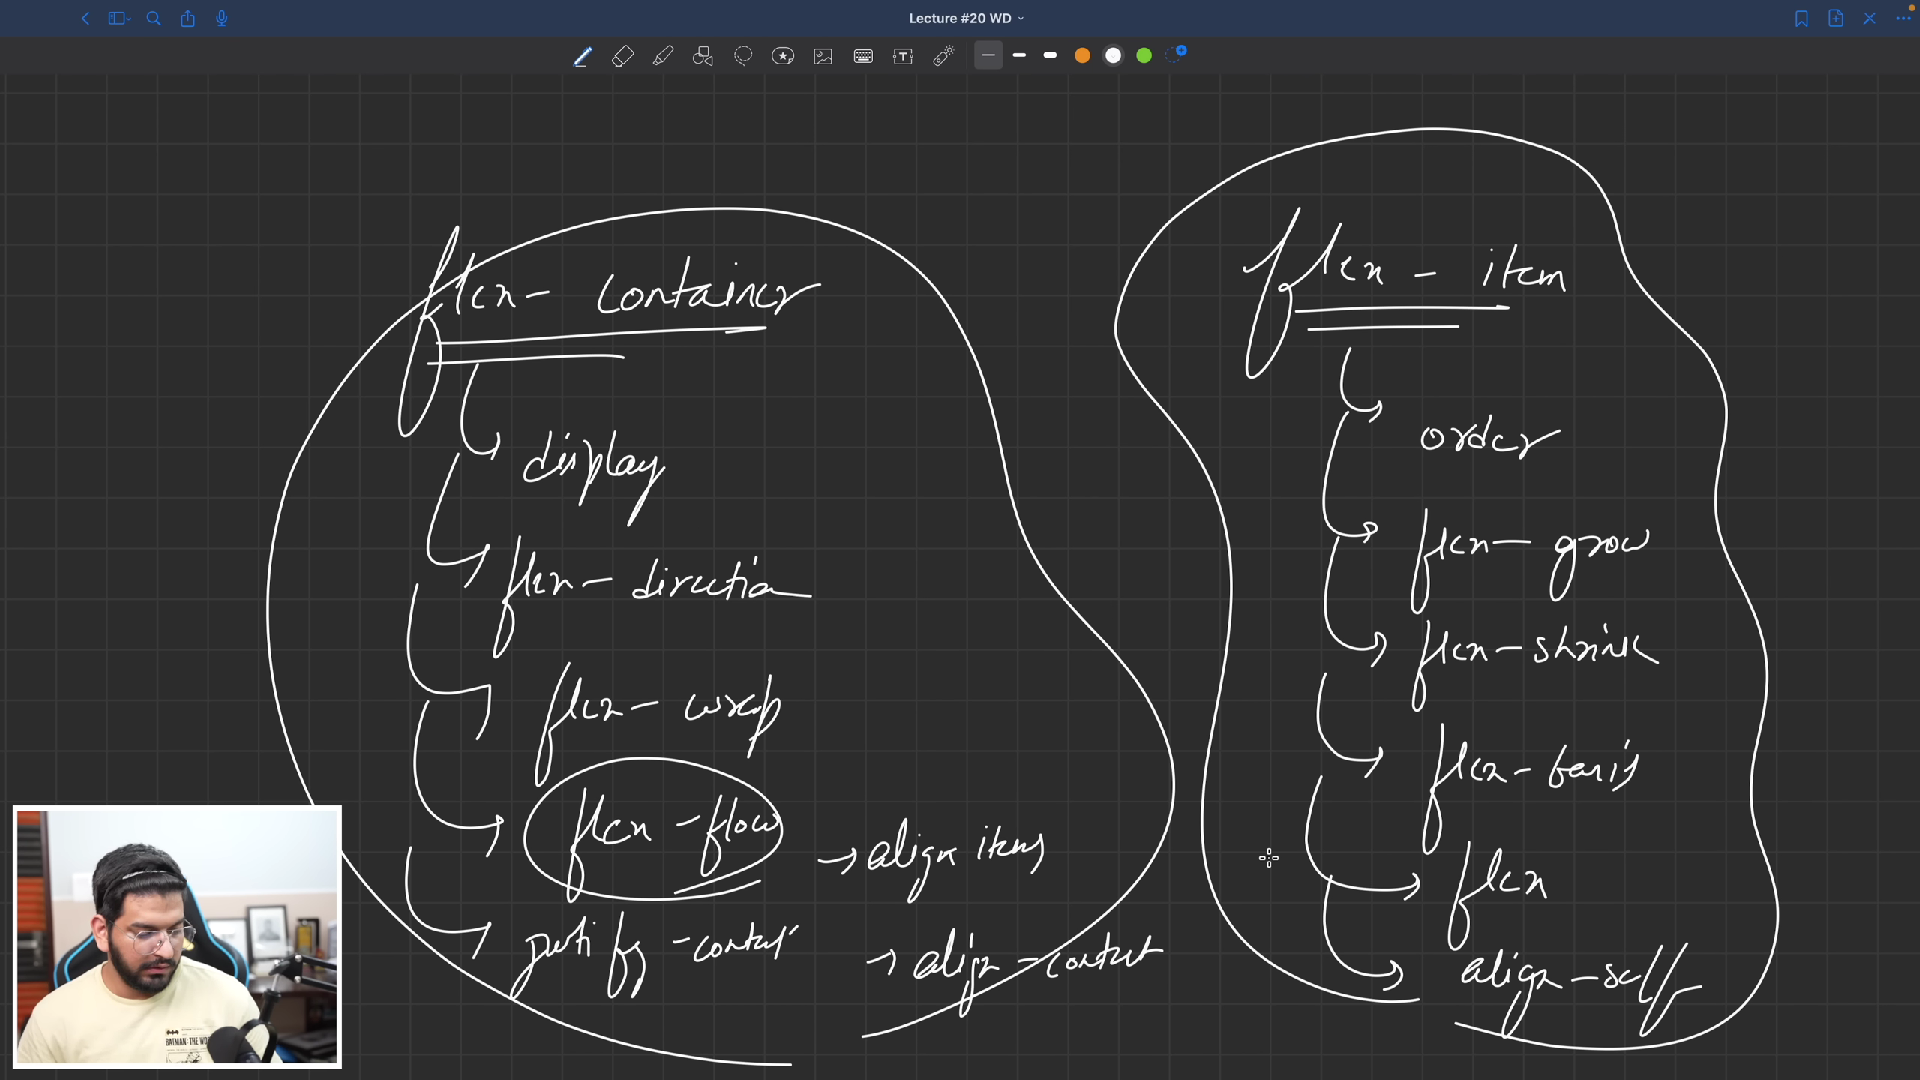 Lecture #20 WD
flex - container
display
flex - direction
flex - wrap
flex - flow
→ align items
justify - content
→ align - content
flex - item
order
flex - grow
flex - shrink
flex - basis
flex
align - self